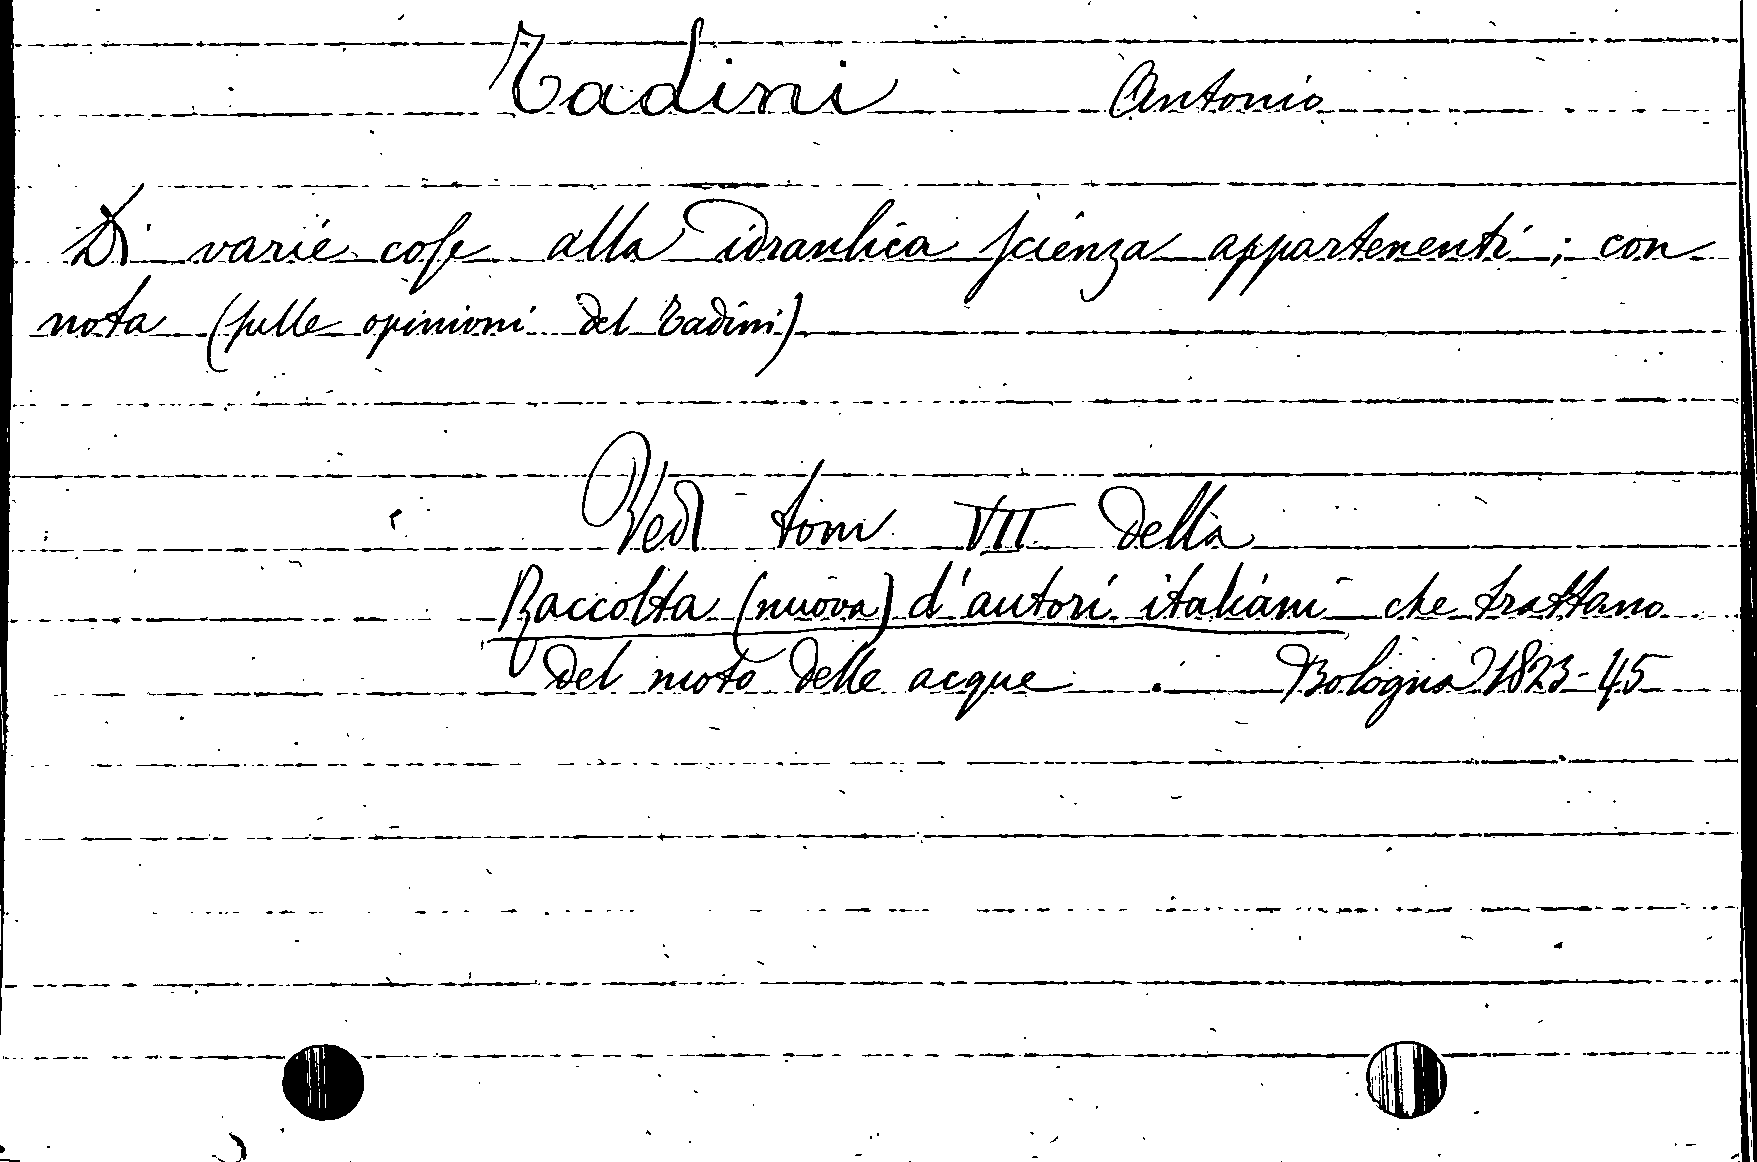 Tadini Antonio
Di varie cose alla idraulica scienza appartenenti; con
nota (sulle opinioni del Tadini)
Vedi tom VII della
Raccolta (nuova) d'autori italiani che trattano
del moto delle acque . Bologna 1823-45